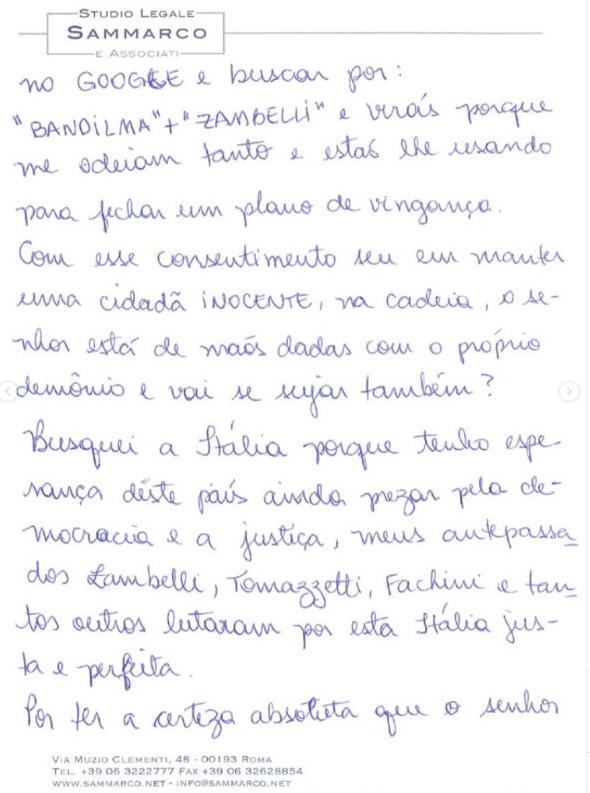 STUDIO LEGALE
SAMMARCO
E ASSOCIATI
no GOOGLE e buscar por:
"BANDILMA"+"ZAMBELLI" e virás porque
me odeiam tanto e estás lhe usando
para fechar um plano de vingança.
Com esse consentimento seu em manter
uma cidadã iNOCENTE, na cadeia, o se-
nhor está de maõs dadas com o próprio
demônio e vai se sujar também?
Busquei a Itália porque tenho espe-
rança deste país ainda prezar pela de-
mocracia e a justiça, meus antepassa-
dos Zambelli, Tomazzetti, Fachini e tan-
tos outros lutaram por esta Itália jus-
ta e perfeita.
Por ter a certeza absoluta que o senhor
VIA MUZIO CLEMENTI, 48 - 00193 ROMA
TEL. +39 06 3222777 FAX +39 06 32628854
WWW.SAMMARCO.NET - INFO@SAMMARCO.NET